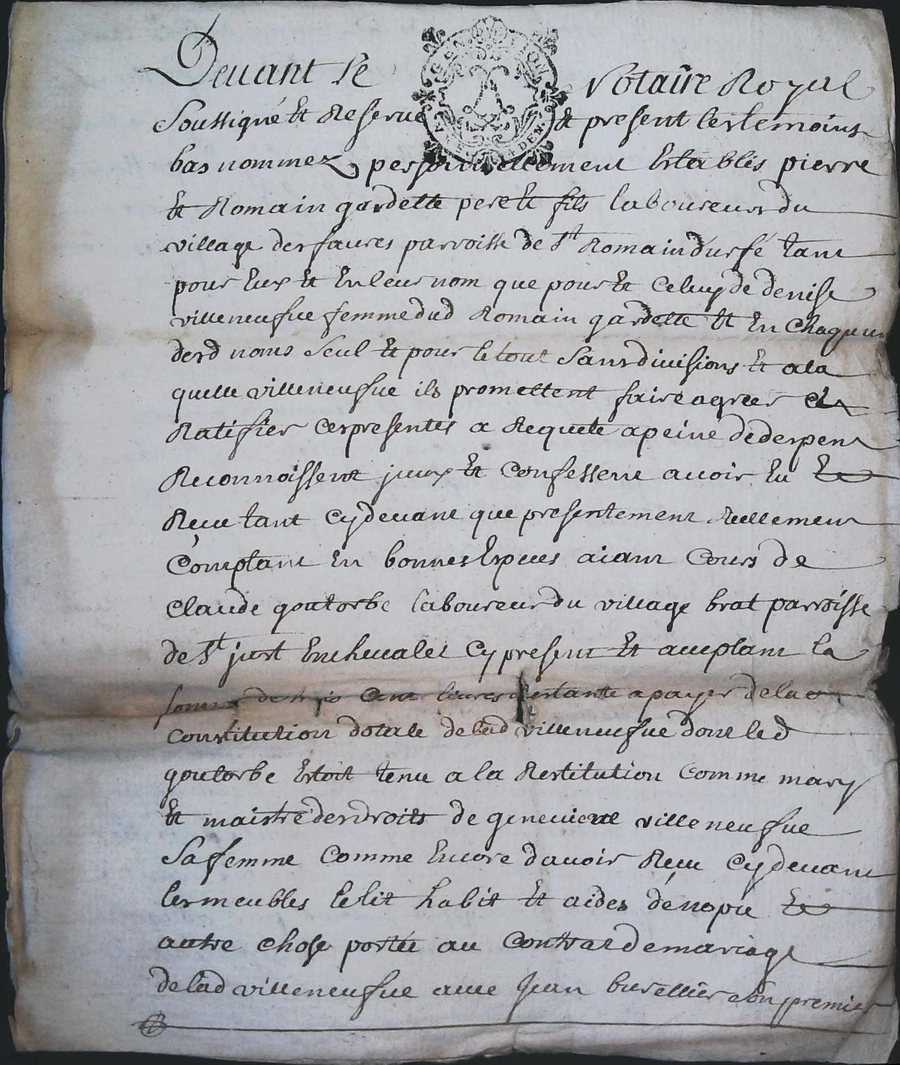 Devant le Notaire Royal
Soussigné et Reservé et present les temoins
bas nommez personnellement Establis pierre
et Romain gardette pere et fils laboureurs du
village des faures parroisse de St Romain durfé tant
pour Eux et En leur nom que pour et Celuy de denise
villeneufve femme dud Romain gardette et En Chaqun
desd noms Seul et pour le tout Sans divisions et a la
quelle villeneufve ils promettent faire agreer et
Ratifier ces presentes a Requete a peine de despens
Reconnoissent jceux et Confessent avoir Eu et
Reçu tant Cy devant que presentement Réellement
Comptant En bonnes Especes aiant Cours de
Claude goutorbe laboureur du village brat parroisse
de St just En chevalet Cy present et acceptant la
somme de trois Cent livres Restante a payer de la
Constitution dotale de lad villeneufve dont led
goutorbe Estoit tenu a la Restitution Comme mary
et maistre des droits de genevieve villeneufve
Sa femme Comme Encore d'avoir Reçu Cy devant
les meubles le lit habit et aides de nopce et
autre chose portée au Contrat de mariage
de lad villeneufve avec Jean burellier Son premier